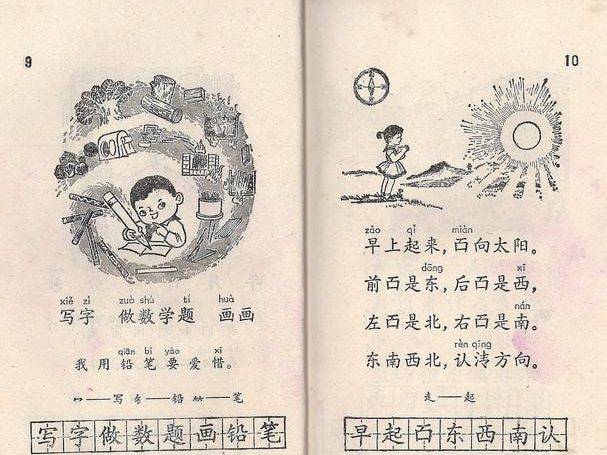 9
xiě zì zuò shù tí huà
写字 做数学题 画画
qiān bǐ yào xī
我用铅笔要爱惜。
冖——写 钅——铅 ⺮——笔
写字做数题画铅笔
10
zǎo qǐ miàn
早上起来,面向太阳。
dōng xī
前面是东,后面是西,
nán
左面是北,右面是南。
rèn qīng
东南西北,认清方向。
走——起
早起面东西南认